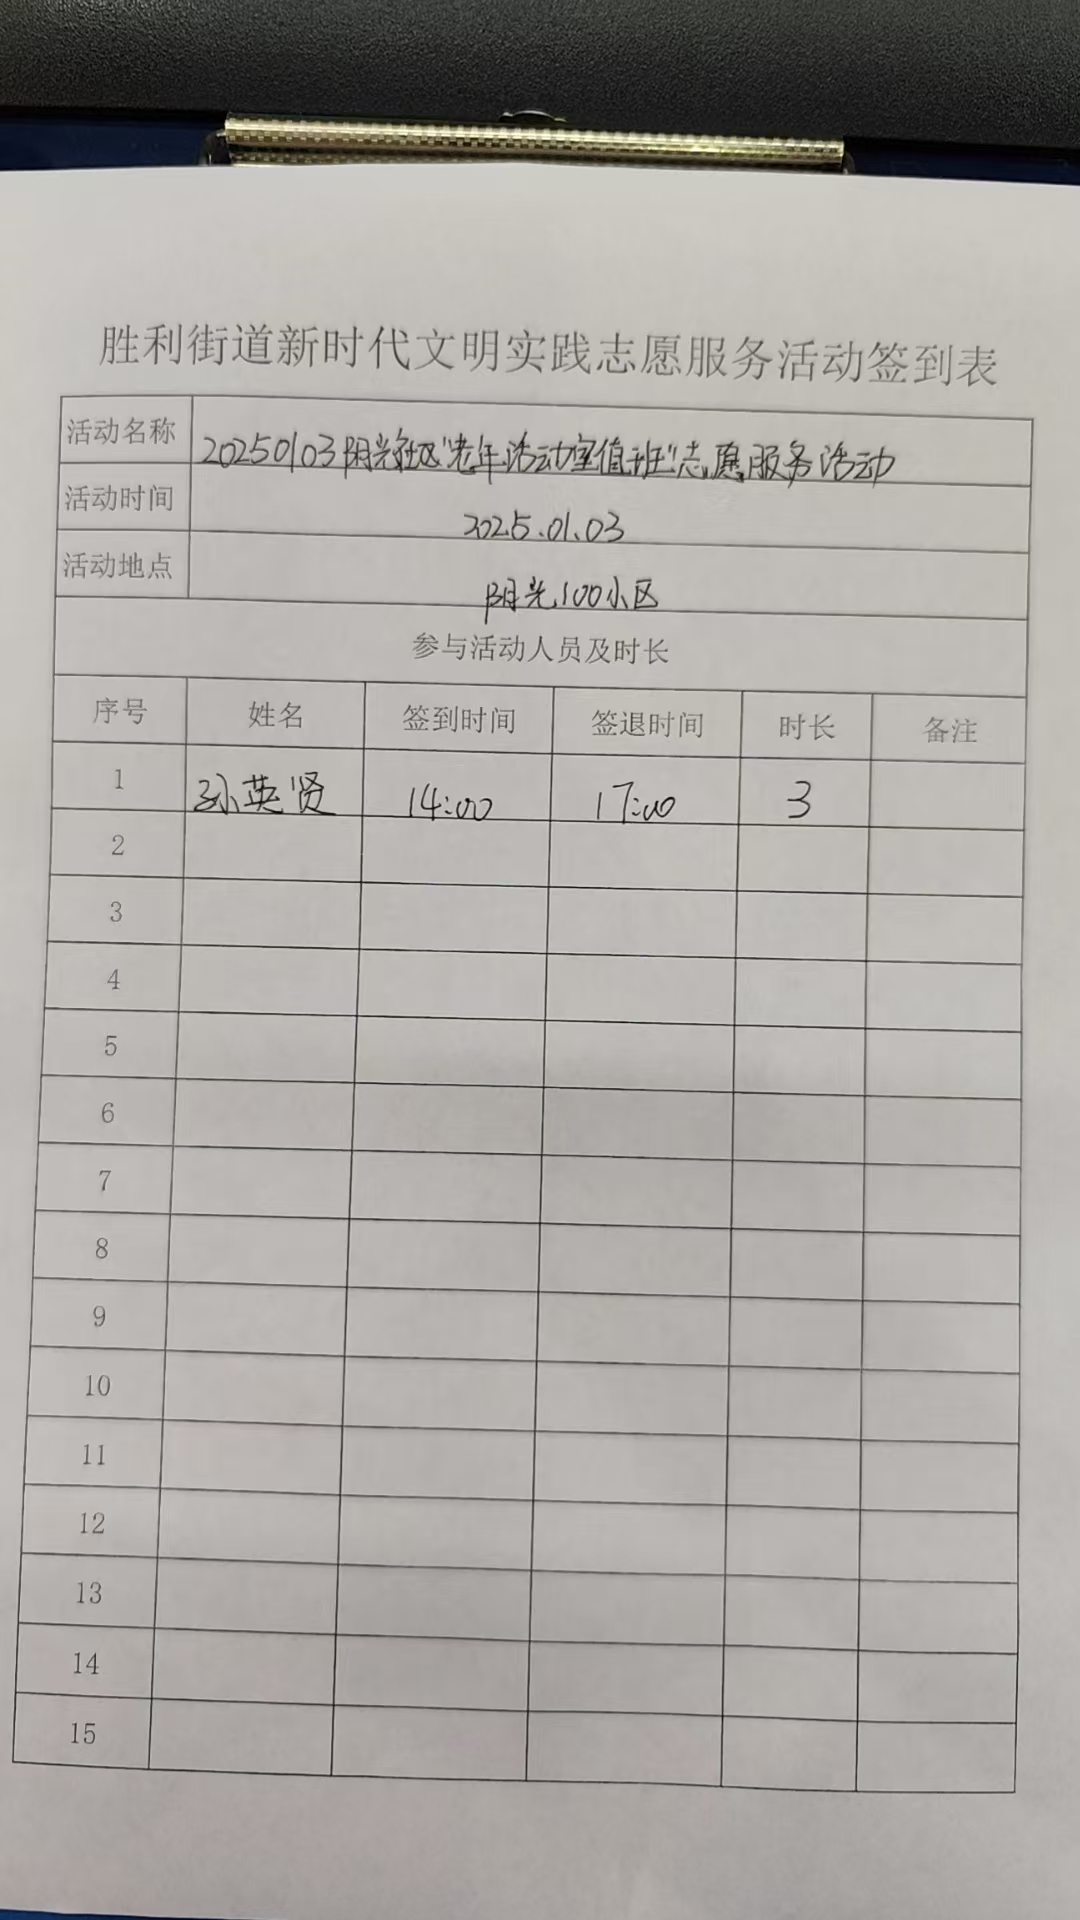 胜利街道新时代文明实践志愿服务活动签到表
活动名称 20250103阳光社区“老年活动室值班”志愿服务活动
活动时间 2025.01.03
活动地点 阳光100小区
参与活动人员及时长
序号 姓名 签到时间 签退时间 时长 备注
1 孙英贤 14:00 17:00 3
2
3
4
5
6
7
8
9
10
11
12
13
14
15